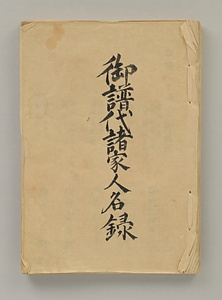 御譜代諸家人名録